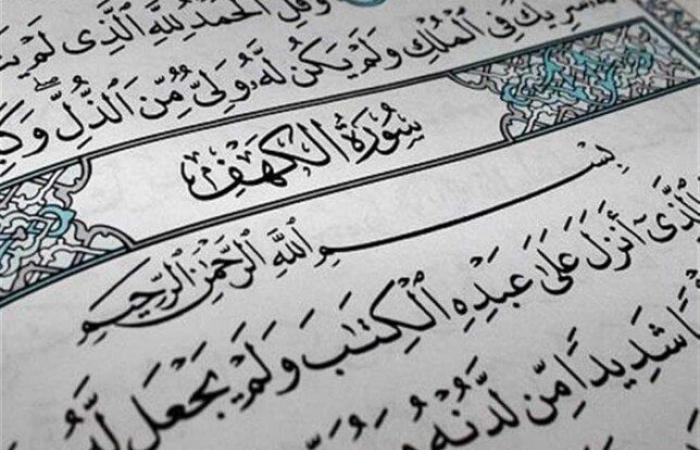 وَقُلِ ٱلْحَمْدُ لِلَّهِ ٱلَّذِى لَمْ
شَرِيكٌ فِى ٱلْمُلْكِ وَلَمْ يَكُن لَّهُۥ وَلِىٌّ مِّنَ ٱلذُّلِّ
سُورَةُ الكَهْفِ
بِسْمِ ٱللَّهِ ٱلرَّحْمَٰنِ ٱلرَّحِيمِ
ٱلَّذِىٓ أَنزَلَ عَلَىٰ عَبْدِهِ ٱلْكِتَٰبَ وَلَمْ يَجْعَل لَّهُۥ
شَدِيدًا مِّن لَّدُنْهُ وَيُبَشِّرَ